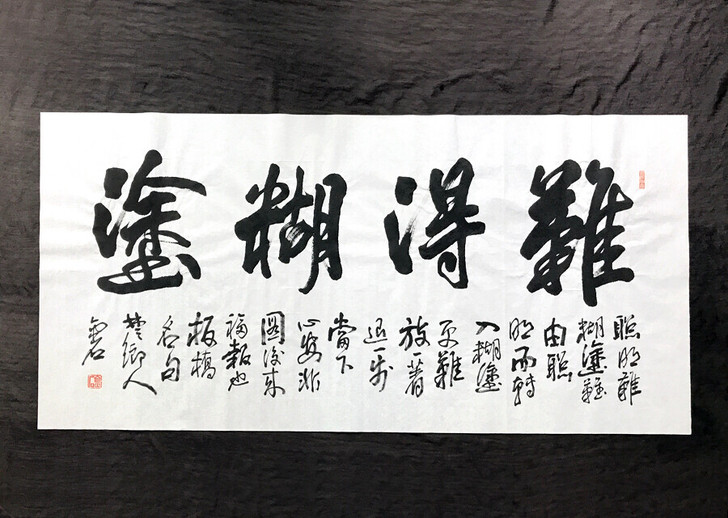 難得糊塗
聰明難
糊塗難
由聰
明而轉
入糊塗
更難
放一著
退一步
當下
心安非
圖後來
福報也
板橋
名句
楚鄉人